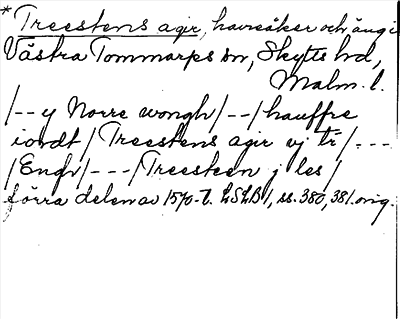 * Treestens agir, havreåker och äng i
Västra Tommarps sn, Skytts hd,
Malm. l.
/--y Norre wongh/--/hauffre
iordt/Treestens agir vj tr/---
/Engh/---/Treesteen j les/
förra delen av 1570-t. LSLB 1, ss. 380, 381. orig.